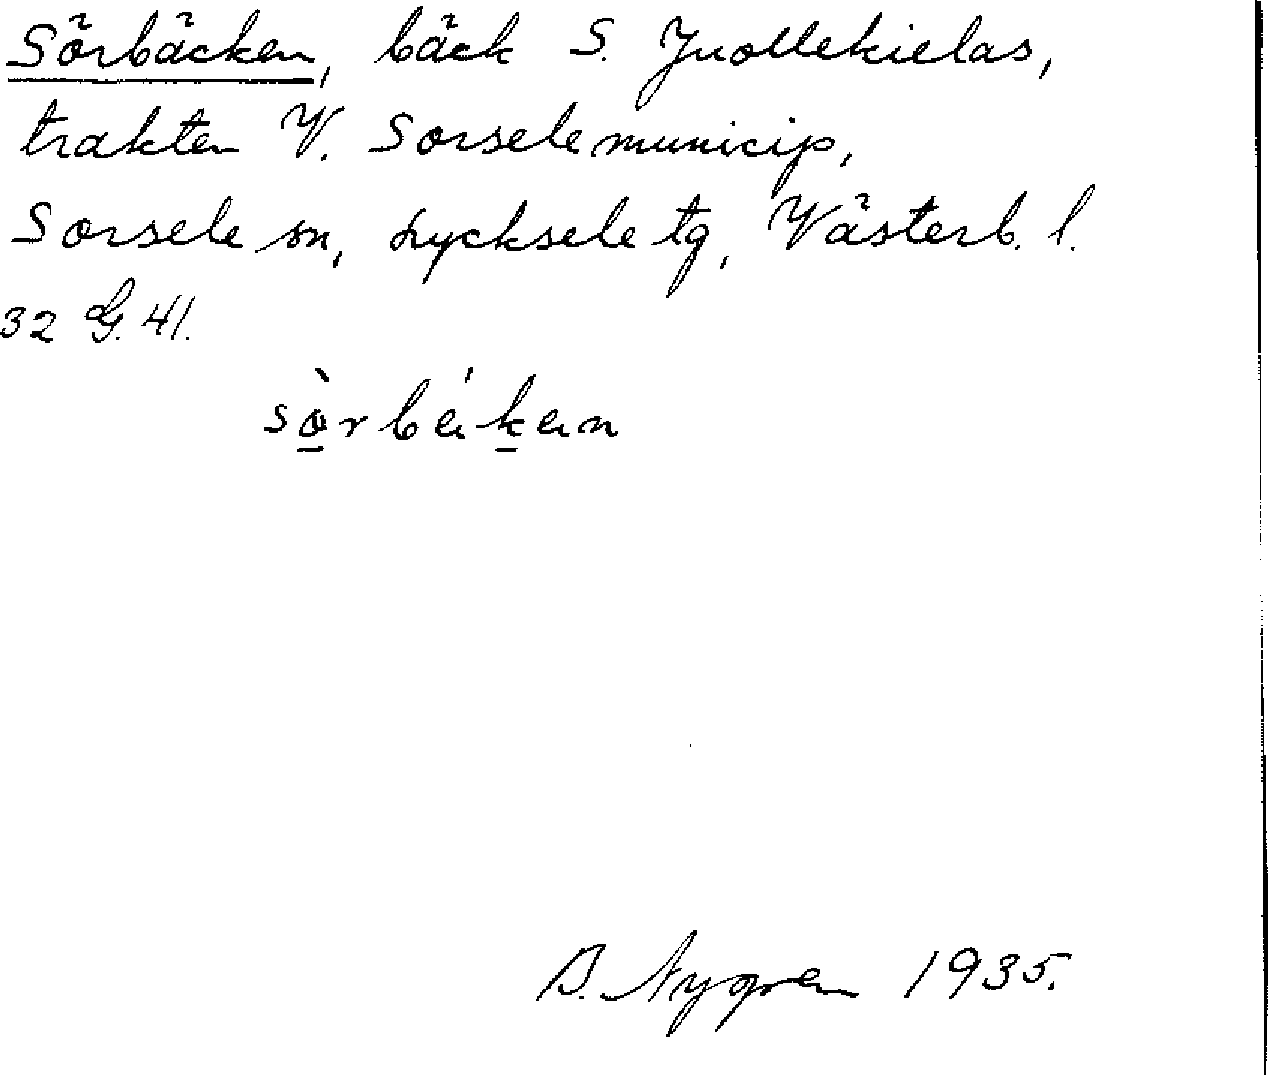 Sörbäcken, bäck S. Juollekielas,
trakten V. Sorsele municip,
Sorsele sn, Lycksele tg, Västerb. l.
32 G. 41.
sòrbákan
Nygren 1935.